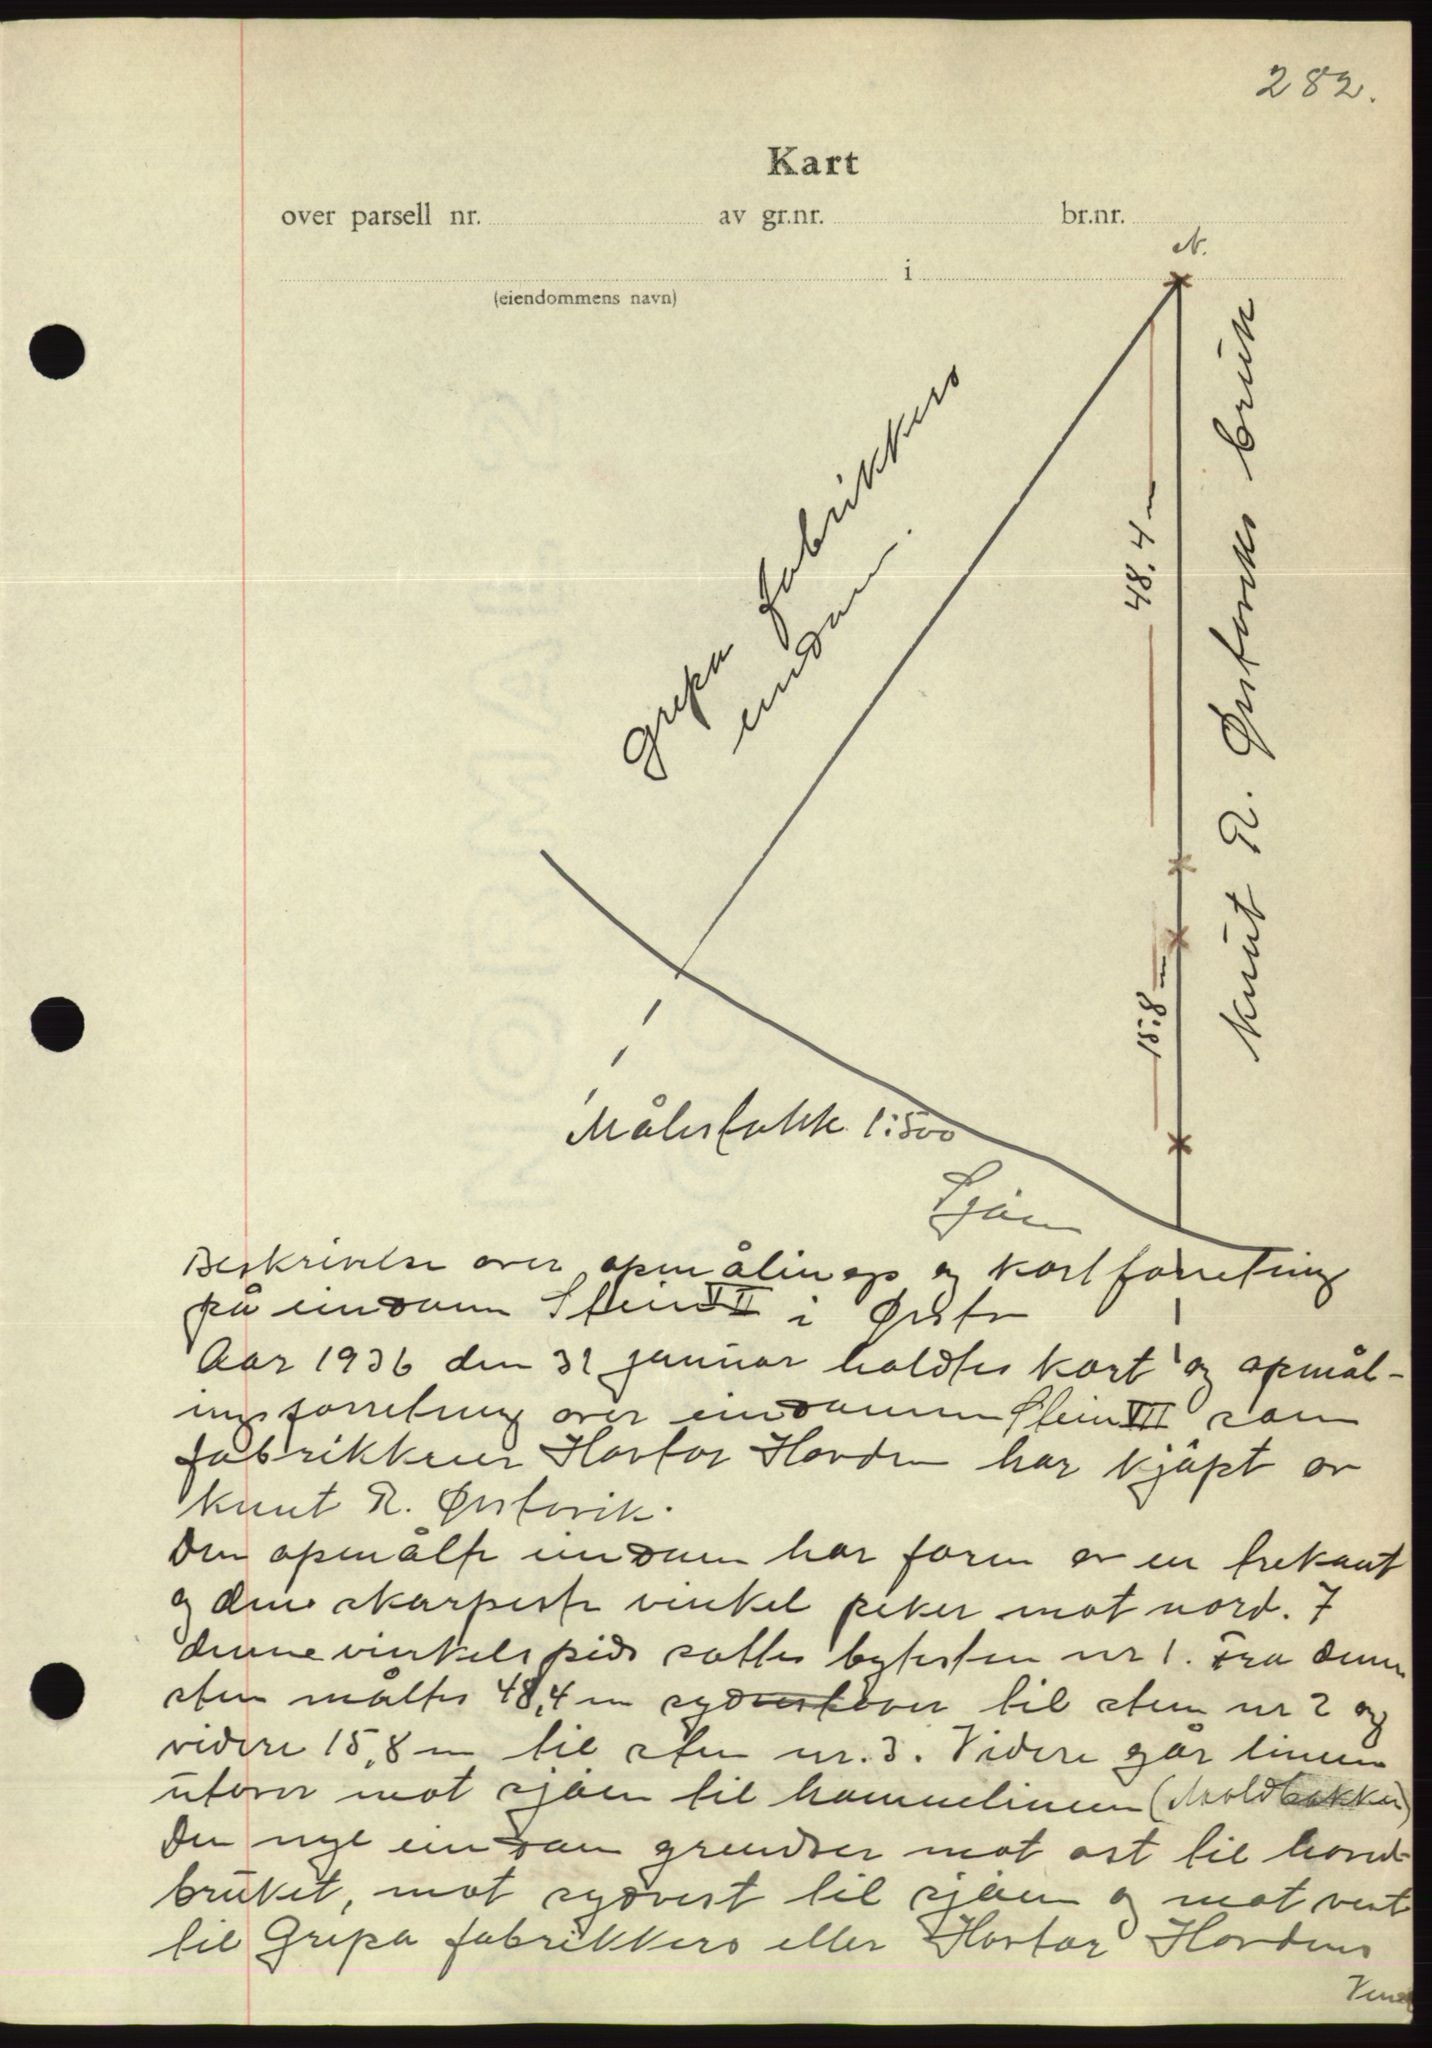 282.
Kart
over parsell nr. av gr.nr. br.nr.
i
(eiendommens navn)
N.
Grepa fabrikkers
eindom.
48.4 m
15.8 m
Knut R. Ørstaviks bruk
Målestokk 1:500
Sjöen
Beskrivelse over opmålings og kartforretning
på eindom Stein VII i Ørsta
Aar 1936 den 31 januar holdtes kart og opmål-
ingsforretning over eindommen Stein VII som
fabrikkeier Hovtor Hovden har kjöpt av
Knut R. Ørstavik.
Den opmålte eindom har form av en trekant
og den skarpeste vinkel peker mot nord. I
denne vinkelspids sattes bytesten nr 1. Fra denne
sten måltes 48,4 m sydvestover til sten nr 2 og
videre 15,8 m til sten nr. 3. Videre går linien
utover mot sjöen til
(Moldbakken)
Den nye eindom grendser mot ost til hoved-
bruket, mot sydvest til sjöen og mot vest
til Grepa fabrikkers eller Hovtor Hovdens